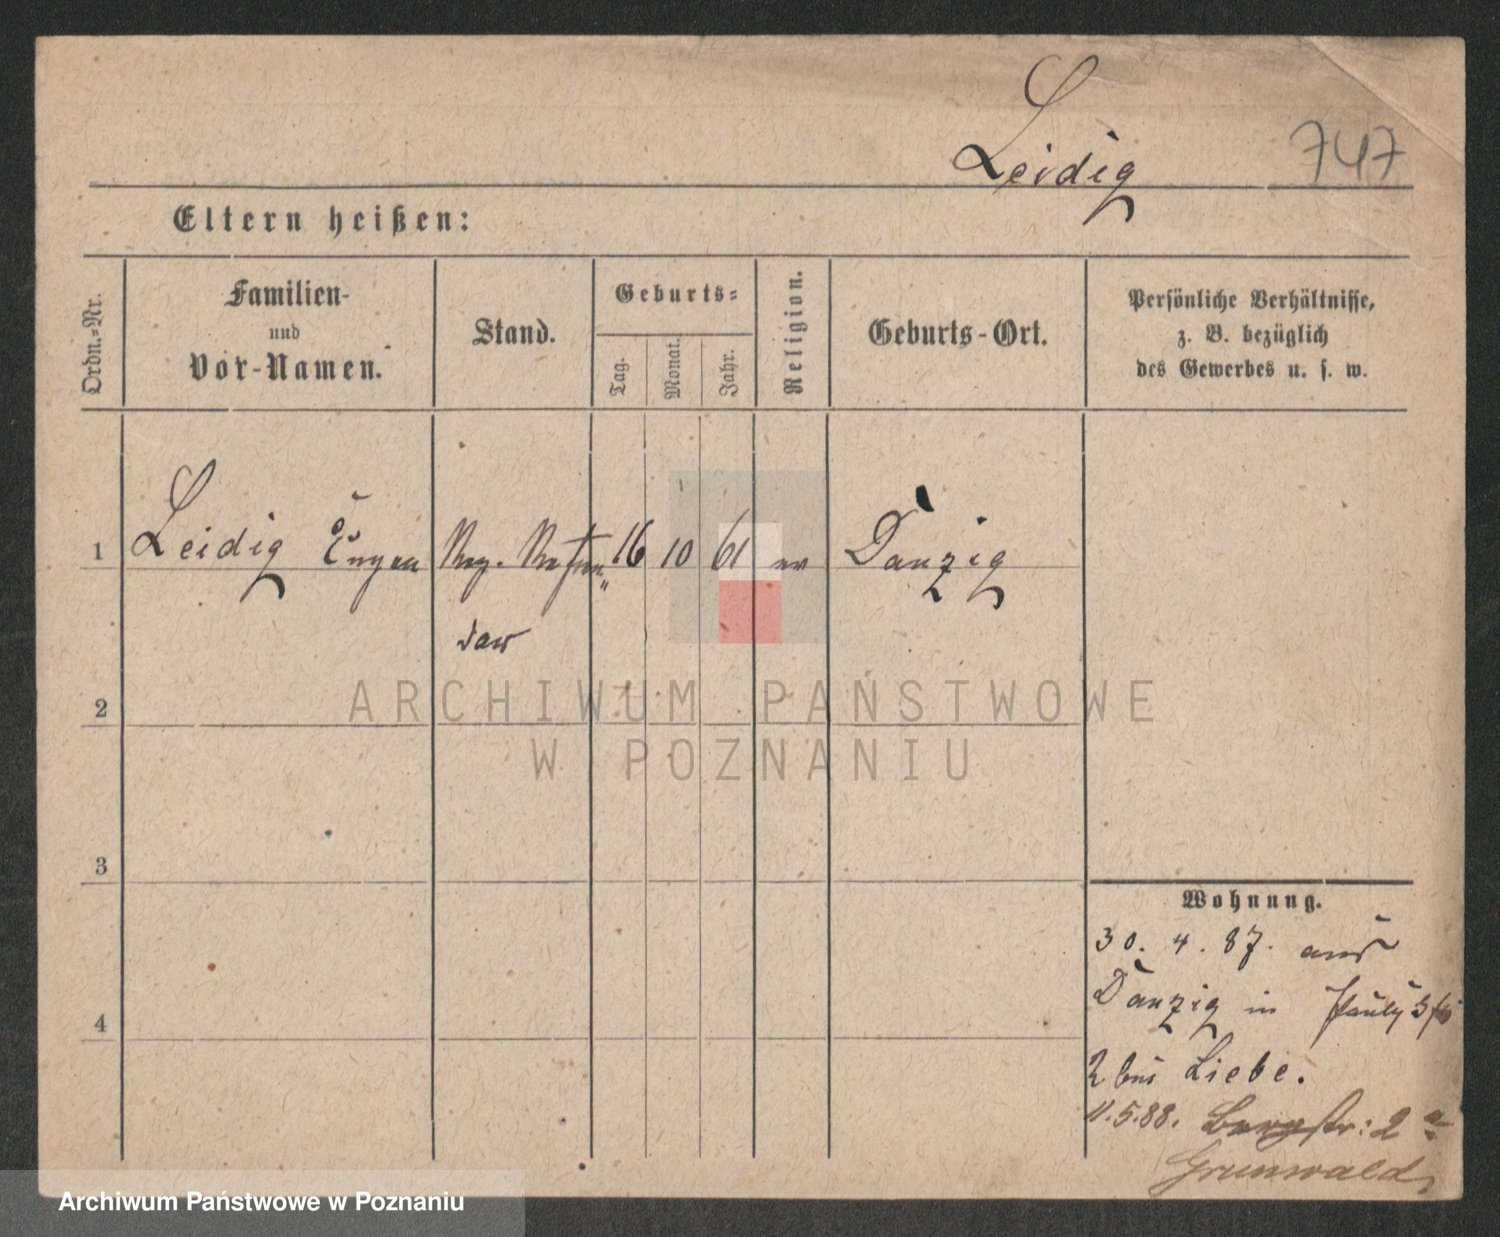 Leidig 747
Eltern heißen:
Ordn.-Nr.
Familien-
und
Vor-Namen.
Stand.
Geburts-
Tag.
Monat.
Jahr.
Religion.
Geburts-Ort.
Persönliche Verhältnisse,
z. B. bezüglich
des Gewerbes u. s. w.
1 Leidig Eugen Reg. Referen„ 16 10 61 ev Danzig
dar
2
3
4
Wohnung.
30. 4. 87. aus
Danzig in
2 bei Liebe.
11.5.88. Bergstr: 2 a
Grunwald
ARCHIWUM PAŃSTWOWE
W POZNANIU
Archiwum Państwowe w Poznaniu